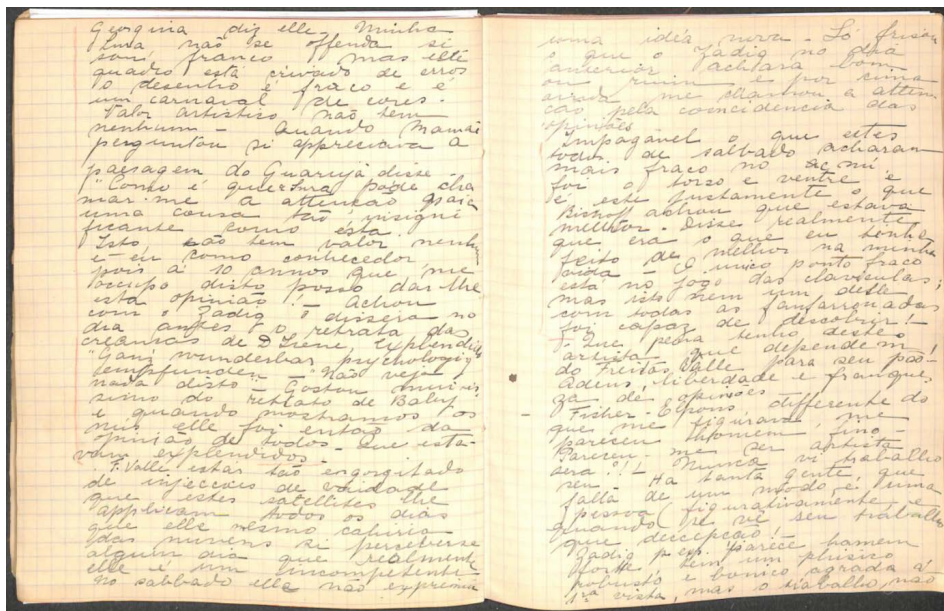 Georgina diz elle. Minha
não se offenda si
sou franco mas este
quadro está crivado de erros
o desenho é fraco e é
um carnaval de cores.
Valor artistico não tem
nenhum – Quando Mamãe
perguntou si appreciava a
paesagem do Guarujá disse
"Como é que Sra. pode cha
mar-me a attenção para
uma cousa tão insigni
ficante como esta.
Isto não tem valor nenhum
e eu como conhecedor
pois á 10 annos que me
occupo disto posso dar lhe
esta opinião! – Achou
com o Zadig o dissera no
dia antes o retrato das
creanças de D Irene, explendido
"Ganz wunderbar psychologis
empfunden – "Não vejo
nada disto" – Gostou muiris
simo do retrato de Baby
e quando mostramos os
nús elle foi então da
opinião de todos. Que esta-
vam explendidos –
F. Valle estar tão engorgitado
de injecções de vaidade
que estes satellites lhe
applicam todos os dias
que elle mesmo cahiria
das nuvens si percebesse
algum dia que realmente
elle é um incompetente –
No sabbado elle não exprimiu
uma idéa nova – Só frisou
o que o Zadig no dia
anterior achara bom
ou ruim e por cima
me chamou a atten
ção pela coincidencia das
opiniões
Impagavel o que estes
todos de sabbado acharam
mais fraco no nú
foi o torso e ventre e
é este justamente o que
Bishof achou que estava
melhor – Disse realmente
que era o que eu tenho
feito de melhor na minha
vida – O unico ponto fraco
está no jogo das claviculas;
mas isto nem um delles
com todas as fanfarronadas
foi capaz de descobrir! –
Que pena tenho destes
artistas que dependem
do Freitas Valle para seu pas-
Adeus, liberdade e franque
za de opiniões
– Fisher-Elpons, differente do
que me figurava, me
pareceu homem fino –
Pareceu-me ser artista
será?!! – Nunca vi trabalho
seu – Ha tanta gente que
falla de um modo, é uma
pessoa (figurativamente e
quando se vê seu trabalho
que decepção! –
Zadig p. ex. parece homem
forte, tem um phisico
robusto e bonito, agrada á
1ra vista, mas o trabalho, não